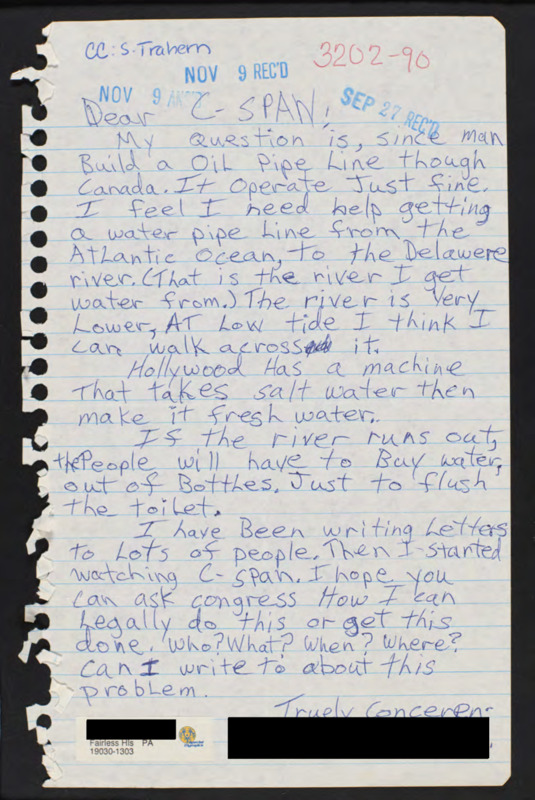 CC: S. Trahern
3202-90
NOV 9 REC'D
NOV 9
SEP 27 REC'D
Dear C-SPAN,
My question is, since man
Build a Oil Pipe Line though
Canada. It Operate Just fine.
I feel I need help getting
a water pipe Line from the
AtLantic Ocean, to the Delawere
river. (That is the river I get
water from.) The river is Very
Lower, AT Low tide I think I
can walk across it.
Hollywood Has a machine
That takes salt water then
make it fresh water.
If the river runs out,
the People will have to Buy water,
out of Botthes. Just to flush
the toiLet.
I have Been writing Letters
to Lots of people. Then I started
watching C-span. I hope you
can ask congress How I can
Legally do this or get this
done. Who? What? When? Where?
can I write to about this
problem.
Truely Conceren:
Fairless Hls PA
19030-1303